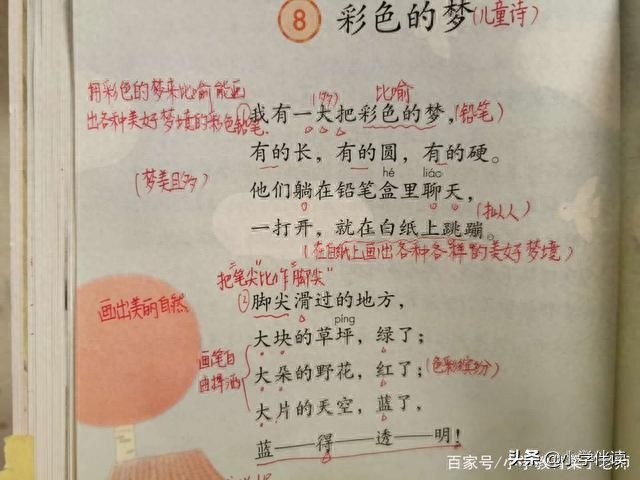 8 彩色的梦(儿童诗)
用彩色的梦来比喻能画 (多) 比喻
出各种美好梦境的彩色铅笔. ①我有一大把彩色的梦,(铅笔)
有的长，有的圆，有的硬。
(梦美且多) hé liáo
他们躺在铅笔盒里聊天，
(拟人)
一打开，就在白纸上跳蹦。
(在白纸上画出各种各样的美好梦境)
把"笔尖"比作"脚尖"
画出美丽自然 ②脚尖滑过的地方，
píng
大块的草坪，绿了；
画笔自
由挥洒 大朵的野花，红了；(色彩缤纷)
大片的天空，蓝了，
蓝——得——透——明！
头条 @小学伴读
百家号/小学教育
老师